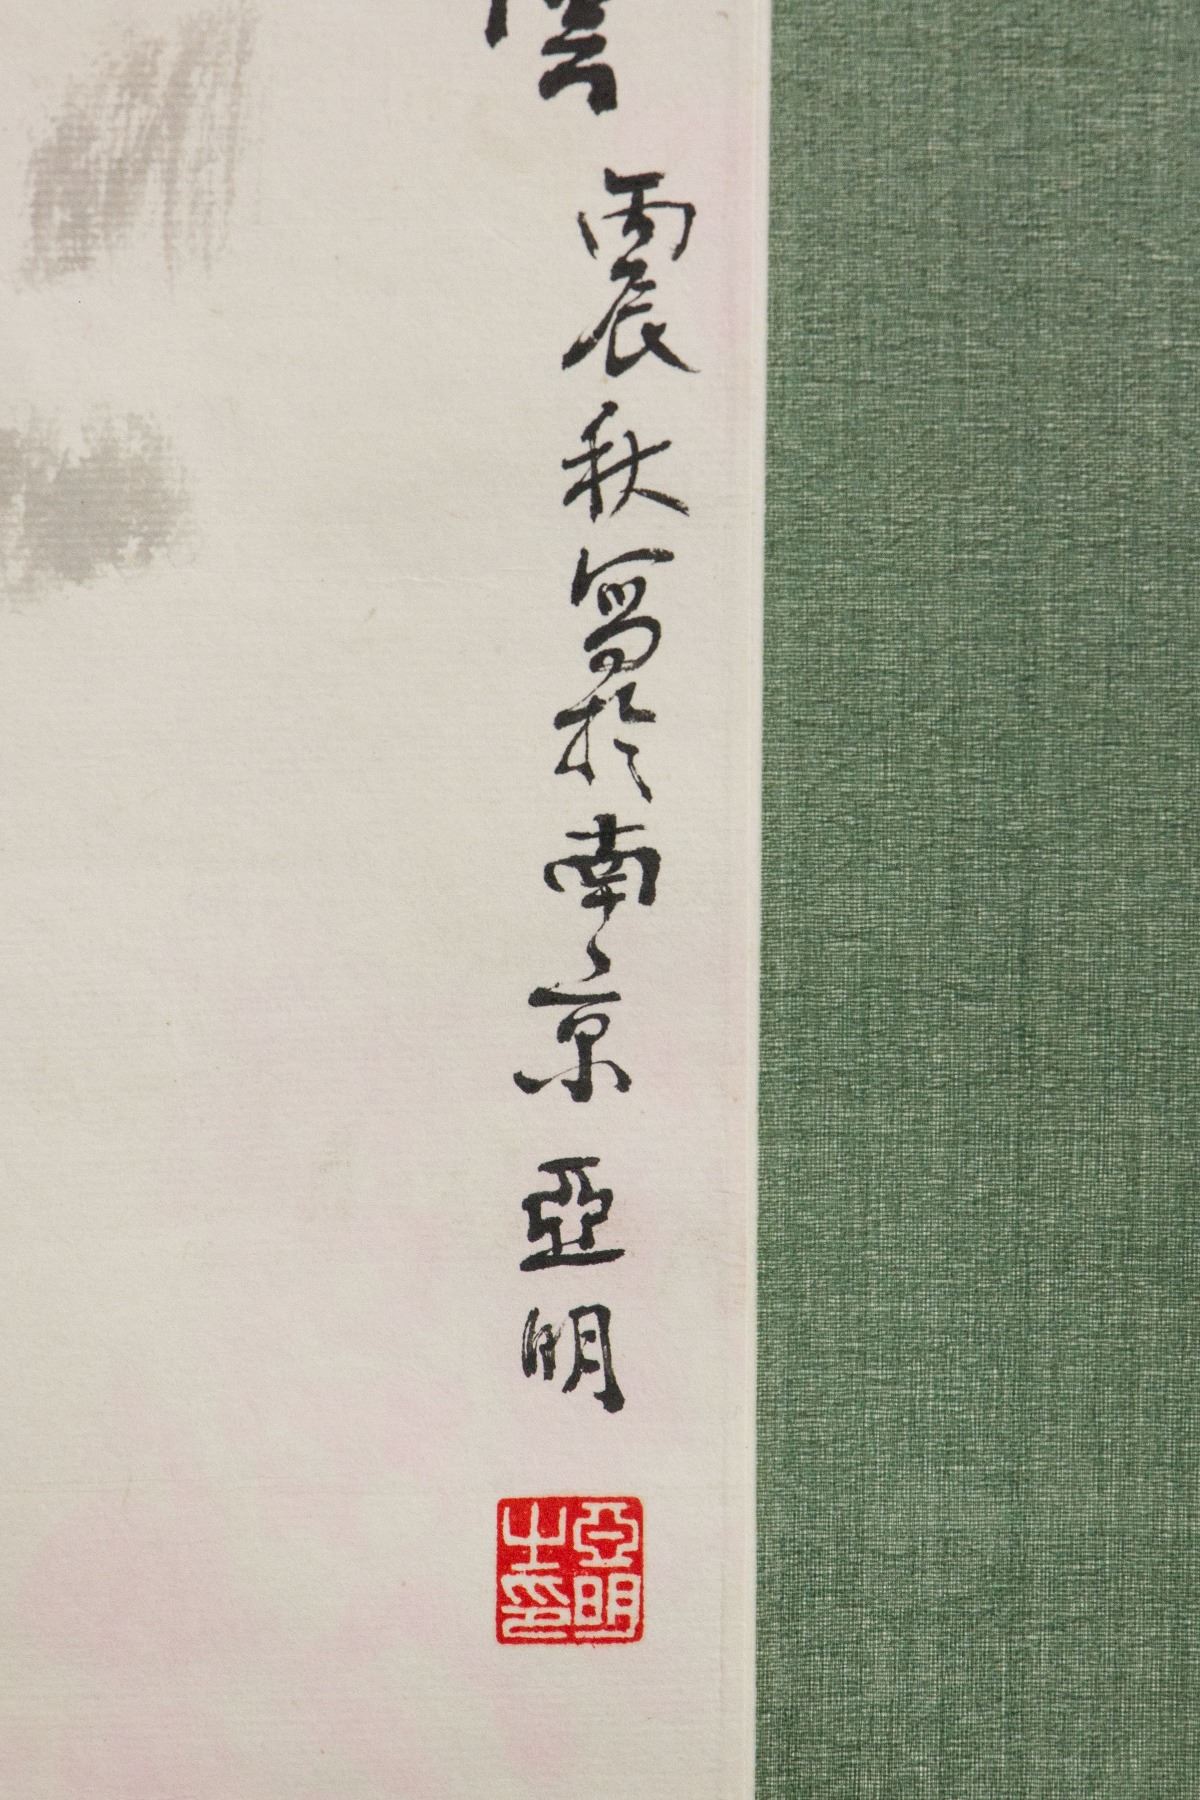 丙辰秋寫於南京 亞明
亞明之印